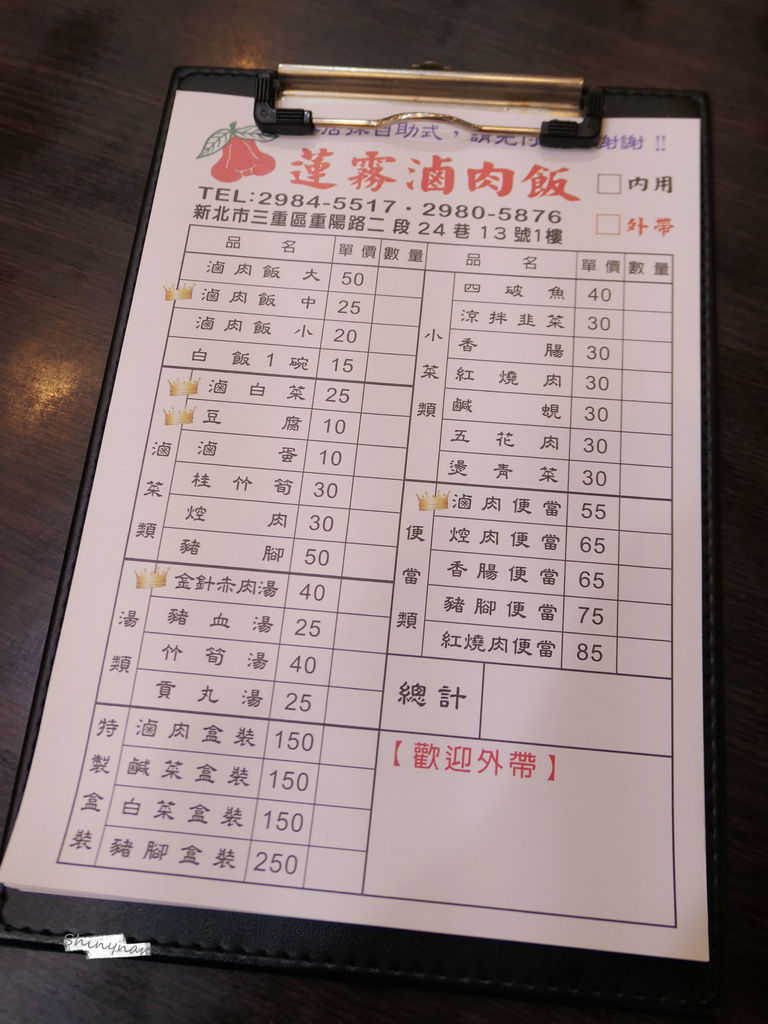 店採自助式，請先付 謝謝 !!
蓮霧滷肉飯
□內用
TEL:2984-5517・2980-5876
□外帶
新北市三重區重陽路二段24巷13號1樓
品名 單價 數量
滷肉飯大 50
滷肉飯中 25
滷肉飯小 20
白飯1碗 15
滷菜類
滷白菜 25
豆腐 10
滷蛋 10
桂竹筍 30
焢肉 30
豬腳 50
湯類
金針赤肉湯 40
豬血湯 25
竹筍湯 40
貢丸湯 25
特製盒裝
滷肉盒裝 150
鹹菜盒裝 150
白菜盒裝 150
豬腳盒裝 250
品名 單價 數量
小菜類
四破魚 40
涼拌韭菜 30
香腸 30
紅燒肉 30
鹹蜆 30
五花肉 30
燙青菜 30
便當類
滷肉便當 55
焢肉便當 65
香腸便當 65
豬腳便當 75
紅燒肉便當 85
總計
【歡迎外帶】
Shinynan